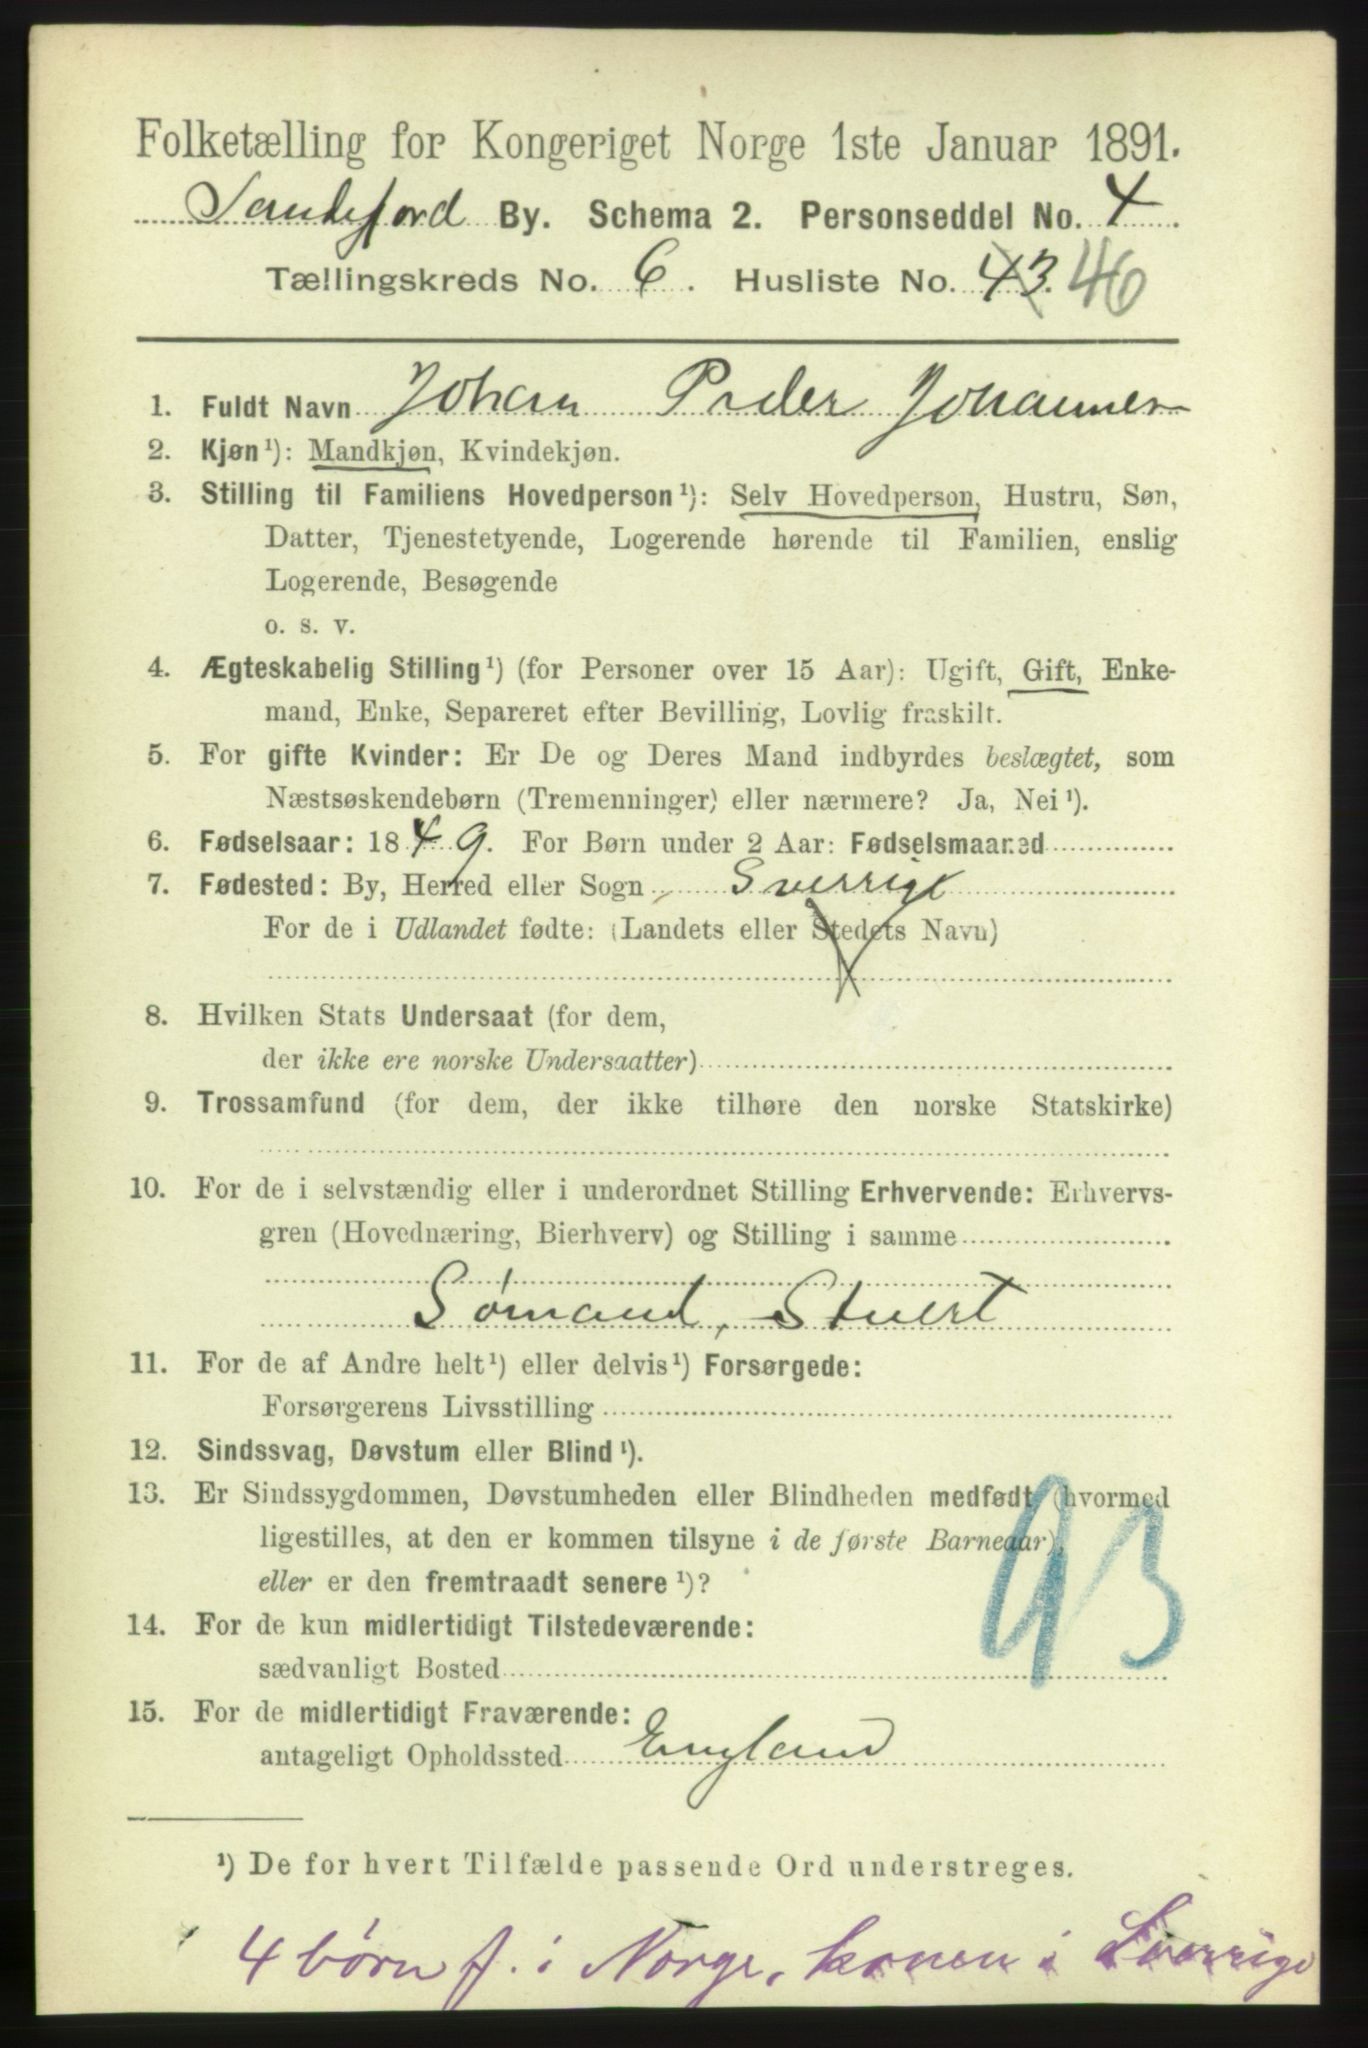 Folketælling for Kongeriget Norge 1ste Januar 1891.
Sandefjord By. Schema 2. Personseddel No. 4
Tællingskreds No. 6. Husliste No. 43. 46
1. Fuldt Navn Johan Peder Johannesen
2. Kjøn¹): Mandkjøn, Kvindekjøn.
3. Stilling til Familiens Hovedperson¹): Selv Hovedperson, Hustru, Søn,
Datter, Tjenestetyende, Logerende hørende til Familien, enslig
Logerende, Besøgende
o. s. v.
4. Ægteskabelig Stilling¹) (for Personer over 15 Aar): Ugift, Gift, Enke-
mand, Enke, Separeret efter Bevilling, Lovlig fraskilt.
5. For gifte Kvinder: Er De og Deres Mand indbyrdes beslægtet, som
Næstsøskendebørn (Tremenninger) eller nærmere? Ja, Nei¹).
6. Fødselsaar: 1849. For Børn under 2 Aar: Fødselsmaaned
7. Fødested: By, Herred eller Sogn Sverrige
For de i Udlandet fødte: (Landets eller Stedets Navn)
8. Hvilken Stats Undersaat (for dem,
der ikke ere norske Undersaatter)
9. Trossamfund (for dem, der ikke tilhøre den norske Statskirke)
10. For de i selvstændig eller i underordnet Stilling Erhvervende: Erhvervs-
gren (Hovednæring, Bierhverv) og Stilling i samme
Sømand, Stuert
11. For de af Andre helt¹) eller delvis¹) Forsørgede:
Forsørgerens Livsstilling
12. Sindssvag, Døvstum eller Blind¹).
13. Er Sindssygdommen, Døvstumheden eller Blindheden medfødt (hvormed
ligestilles, at den er kommen tilsyne i de første Barneaar),
eller er den fremtraadt senere¹)?
93
14. For de kun midlertidigt Tilstedeværende:
sædvanligt Bosted
15. For de midlertidigt Fraværende:
antageligt Opholdssted England
¹) De for hvert Tilfælde passende Ord understreges.
4 børn f. i Norge, konen i Sverrige